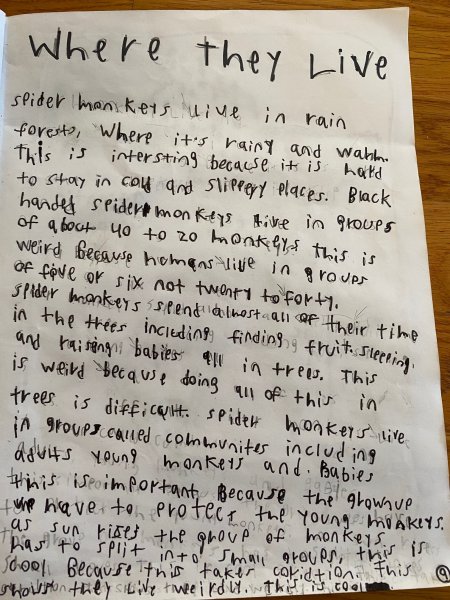 Where they Live
spider monkeys live in rain
forests, where it's rainy and wahm.
This is intersting because it is hard
to stay in cold and slippery places. Black
handed spider monkeys live in groups
of about 40 to 20 monkeys this is
weird because homans live in groups
of five or six not twenty to forty.
spider monkeys spend almost all of their time
in the trees including finding fruit. sleeping.
and raising babies all in trees. This
is weird because doing all of this in
trees is difficalt. spider monkeys live
in groups called communites including
adults young monkeys and Babies
this is important Because the grownup
have to protect the young monkeys.
as sun rises the group of monkeys
has to split into small groups, this is
cool Because this takes coridtion. this
shows they Live weirdly. This is cool